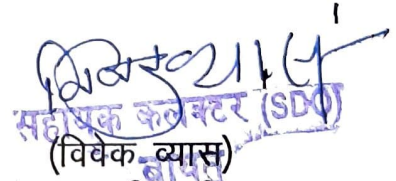 सहायक कलक्टर (SDO)
(विवेक व्यास)
बायतु